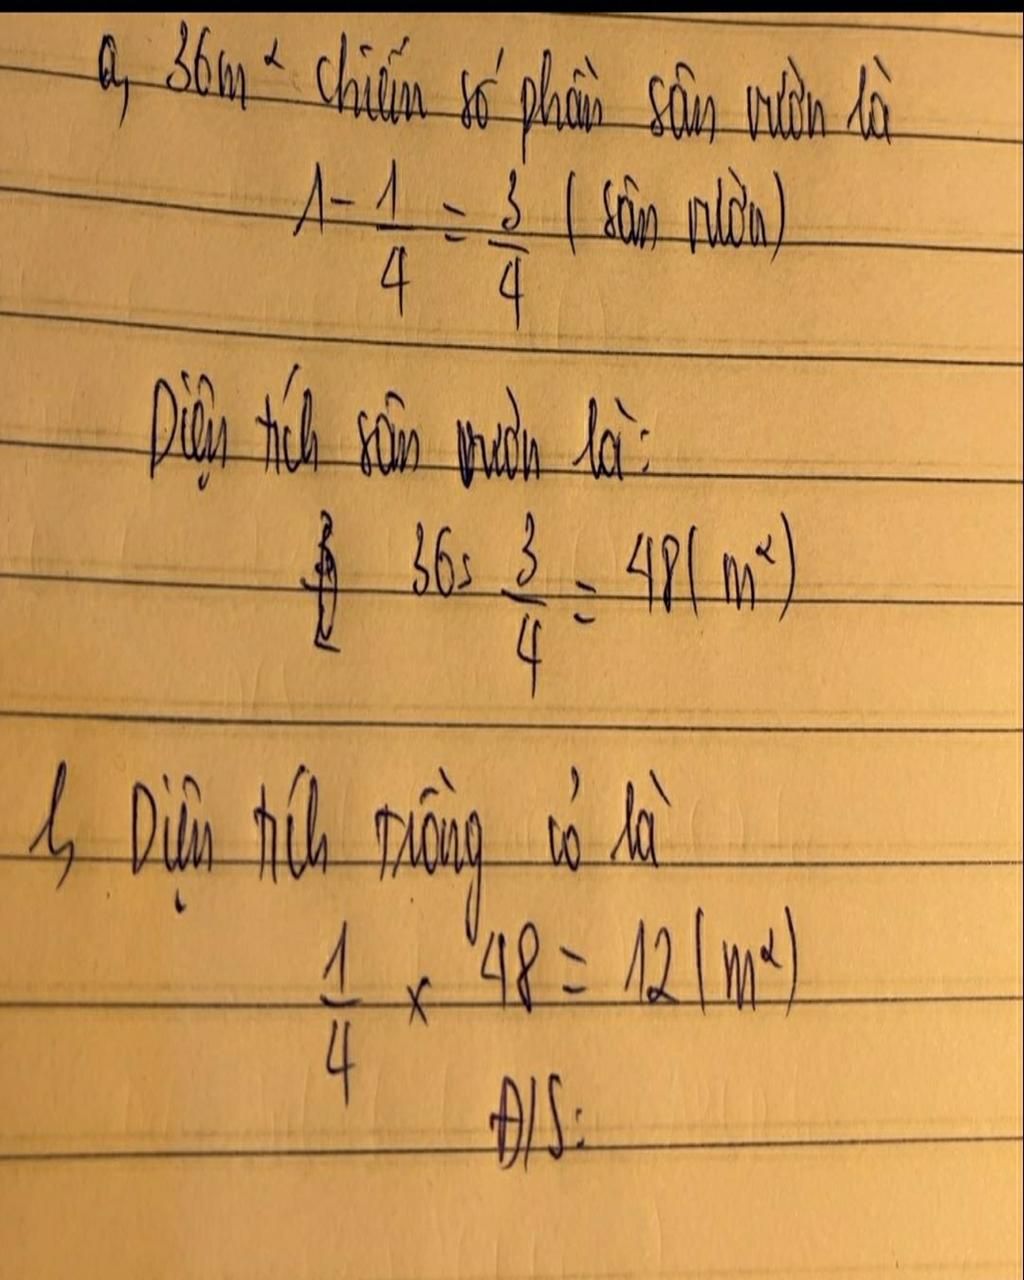 a, 36m² chiếm số phần sân vườn là
1 - 1/4 = 3/4 ( sân vườn)
Diện tích sân vườn là:
36: 3/4 = 48( m²)
b, Diện tích trồng cỏ là
1/4 x 48 = 12 ( m²)
Đ/S: